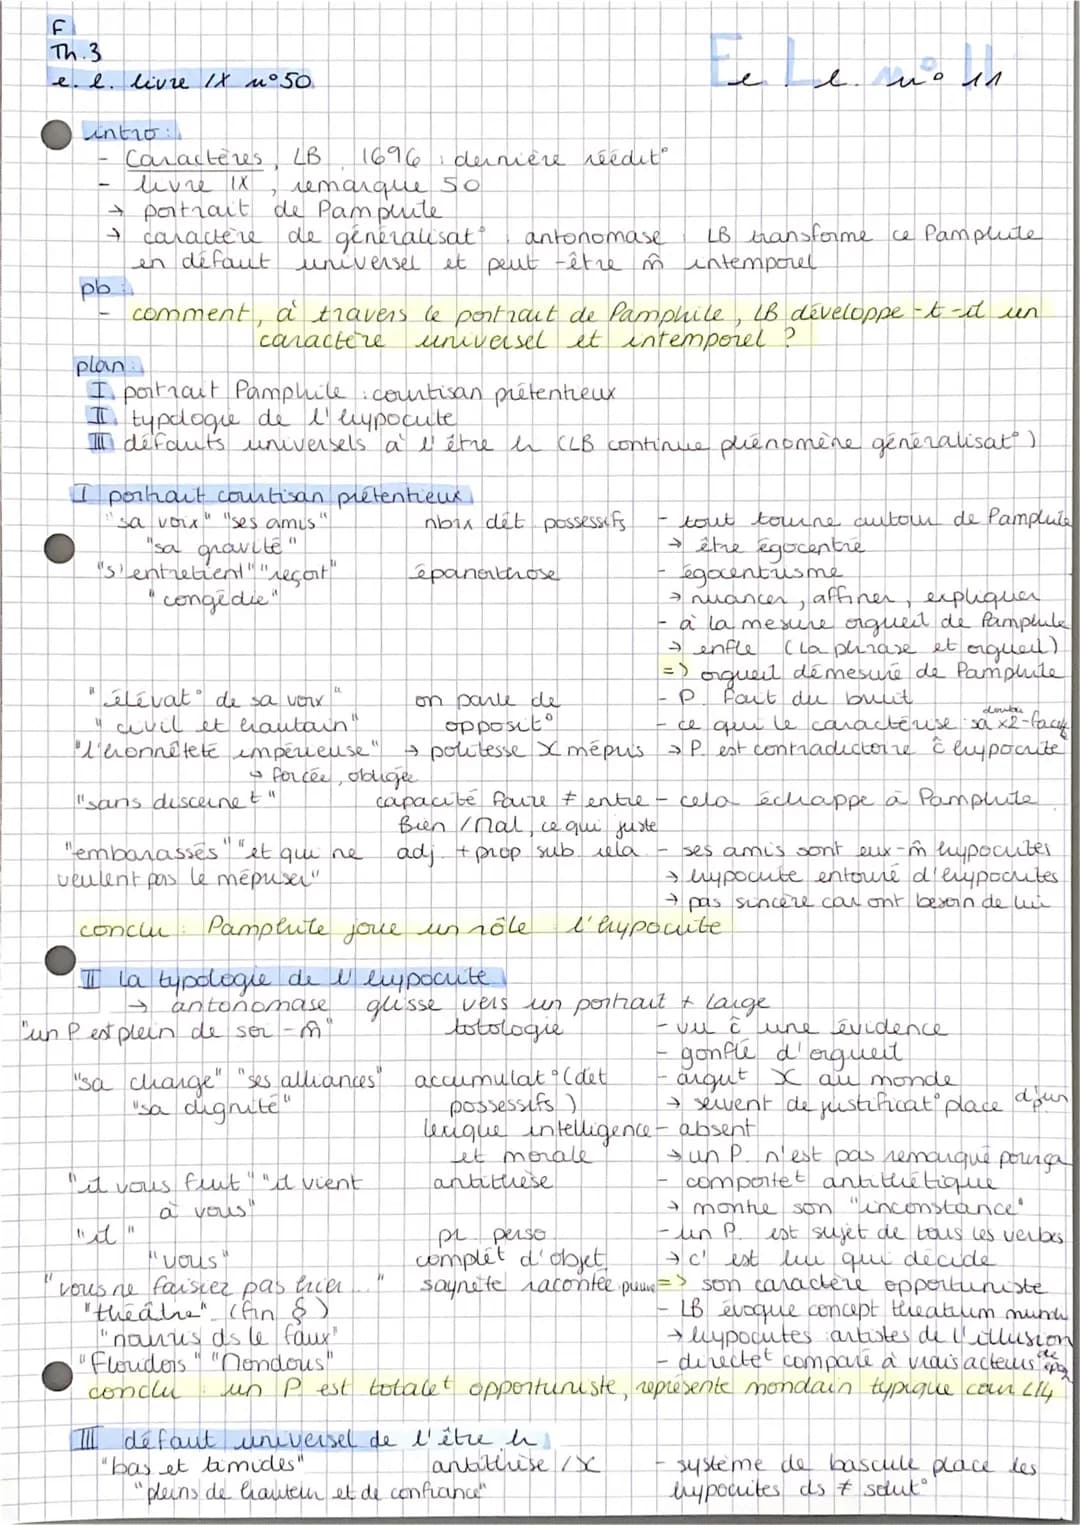 F
Th.3
e.l. livre IX n°50
E.L. n° 11
e.l. n° 11
intro:
- Caractères, LB, 1696 : dernière réédit°
- livre IX, remarque 50
→ portrait de Pamphile
→ caractère de généralisat° : antonomase : LB transforme ce Pamphile
en défaut universel et peut-être m̂ intemporel
pb:
- comment, à travers le portrait de Pamphile, LB développe-t-il un
caractère universel et intemporel ?
plan:
I portrait Pamphile : courtisan prétentieux
II typologie de l'hypocrite
III défauts universels à l'être h (LB continue phénomène généralisat°)
I portrait courtisan prétentieux
"sa voix" "ses amis" nbrx dét. possessifs - tout tourne autour de Pamphile
"sa gravité" → être égocentré
"s'entretient" "reçoit" épanorthose - égocentrisme
"congédie" → nuancer, affiner, expliquer
- à la mesure orgueil de Pamphile
→ enfle (la phrase et orgueil)
=> orgueil démesuré de Pamphile
"élévat° de sa voix" on parle de - P. fait du bruit
"civil et hautain" opposit° - ce qui le caractérise : sa x2-face
double
"l'honnêteté impérieuse" → politesse X mépris → P. est contradictoire ĉ hypocrite
↳ forcée, obligée
"sans discernet" capacité faire ≠ entre - cela échappe à Pamphile
Bien / Mal, ce qui juste
"embarassés" "et qui ne adj. + prop sub. rela - ses amis sont eux-m̂ hypocrites
veulent pas le mépriser" → hypocrite entouré d'hypocrites
→ pas sincère car ont besoin de lui
conclu : Pamphile joue un rôle : l'hypocrite
II la typologie de l'hypocrite
→ antonomase : glisse vers un portrait + large
"un P est plein de soi-m̂" totologie - vu ĉ une évidence
- gonflé d'orgueil
"sa charge" "ses alliances" accumulat° (dét - argut X au monde
"sa dignité" possessifs) → servent de justificat° place d'un
lexique intelligence - absent
et morale → un P. n'est pas remarqué pour ça
"il vous fuit" "il vient antithèse - comportet antithétique
à vous" → montre son "inconstance"
"il" pr. perso - un P. est sujet de tous les verbes
"vous" complét d'objet → c'est lui qui décide
"vous ne faisiez pas hier..." saynète racontée => son caractère opportuniste
"théâtre" (fin §) - LB évoque concept theatrum mundi
"nourris ds le faux" → hypocrites : artistes de l'illusion
"Floridors" "Mondoris" - directet comparé à vrais acteurs de
conclu : un P est totalet opportuniste, représente mondain typique cour L14
III défaut universel de l'être h
"bas et timides" antithèse /X - système de bascule place les
"pleins de hauteur et de confiance" hypocrites ds ≠ solut°